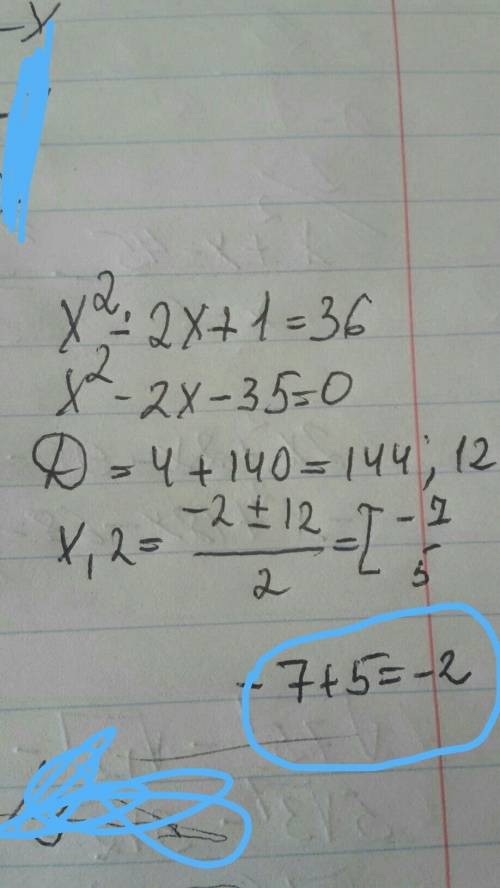 -x
x² - 2x + 1 = 36
x² - 2x - 35 = 0
D = 4 + 140 = 144; 12
x,2 = (-2 ± 12)/2 = [-7
5
-7+5=-2